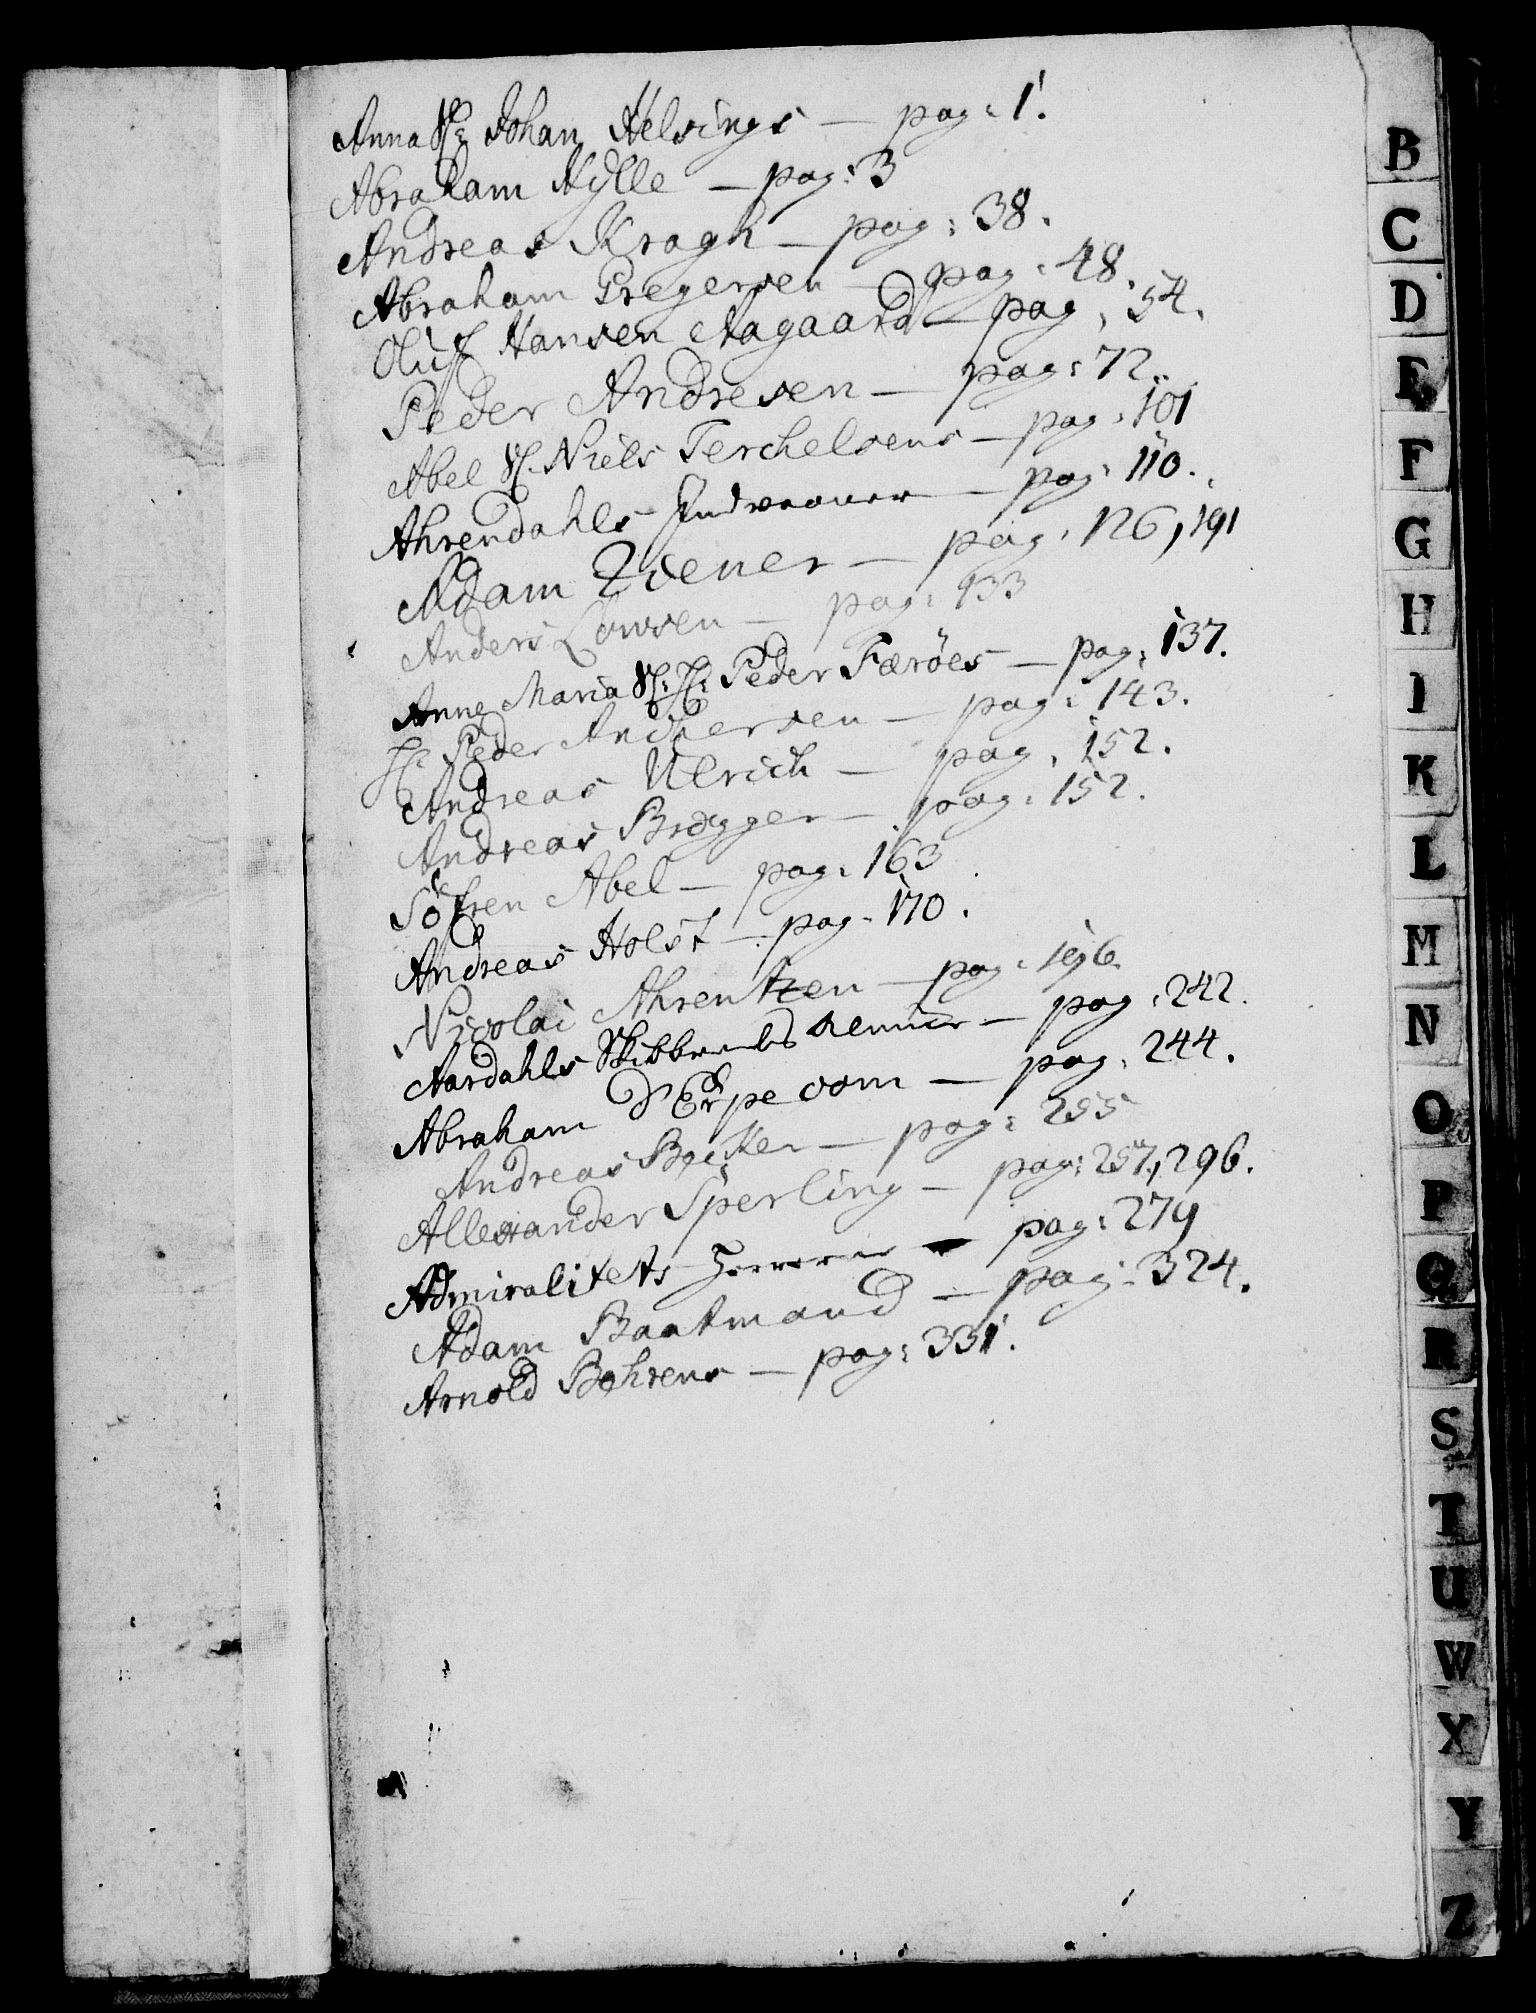 Anna Sl: Johan Helsings — pag: 1.
Abraham Hÿlle — pag: 3
Andreas Kragh — pag: 38.
Abraham Pregersen — pag: 48.
Oluf Hansen Aagaard — pag: 54.
Peder Andresen — pag: 72.
Abel Sl. Niels Terchelsens — pag: 101
Ahrendahls — pag: 110.
Adam Ziener — pag: 126, 191
Anders Lowsen — pag: 133
Anne Maria Sl: Hr: Peder Færöes — pag: 137.
Hr: Peder Andersen — pag: 143.
Andreas Ulrich — pag: 152.
Andreas Brøgger — pag: 152.
Söfren Abel — pag: 163
Andreas Holst — pag: 170.
Nicolai Ahrentzen — pag: 196.
Aardahls — pag: 242.
Abraham — pag: 244.
Andreas Becker — pag: 255
Allexander Sperling — pag: 257, 296.
Admiralitets — pag: 279
Adam Baatmand — pag: 324.
Arnold Behrens — pag: 331.
B
C
D
E
F
G
H
I
K
L
M
N
O
P
Q
R
S
T
U
W
X
Y
Z